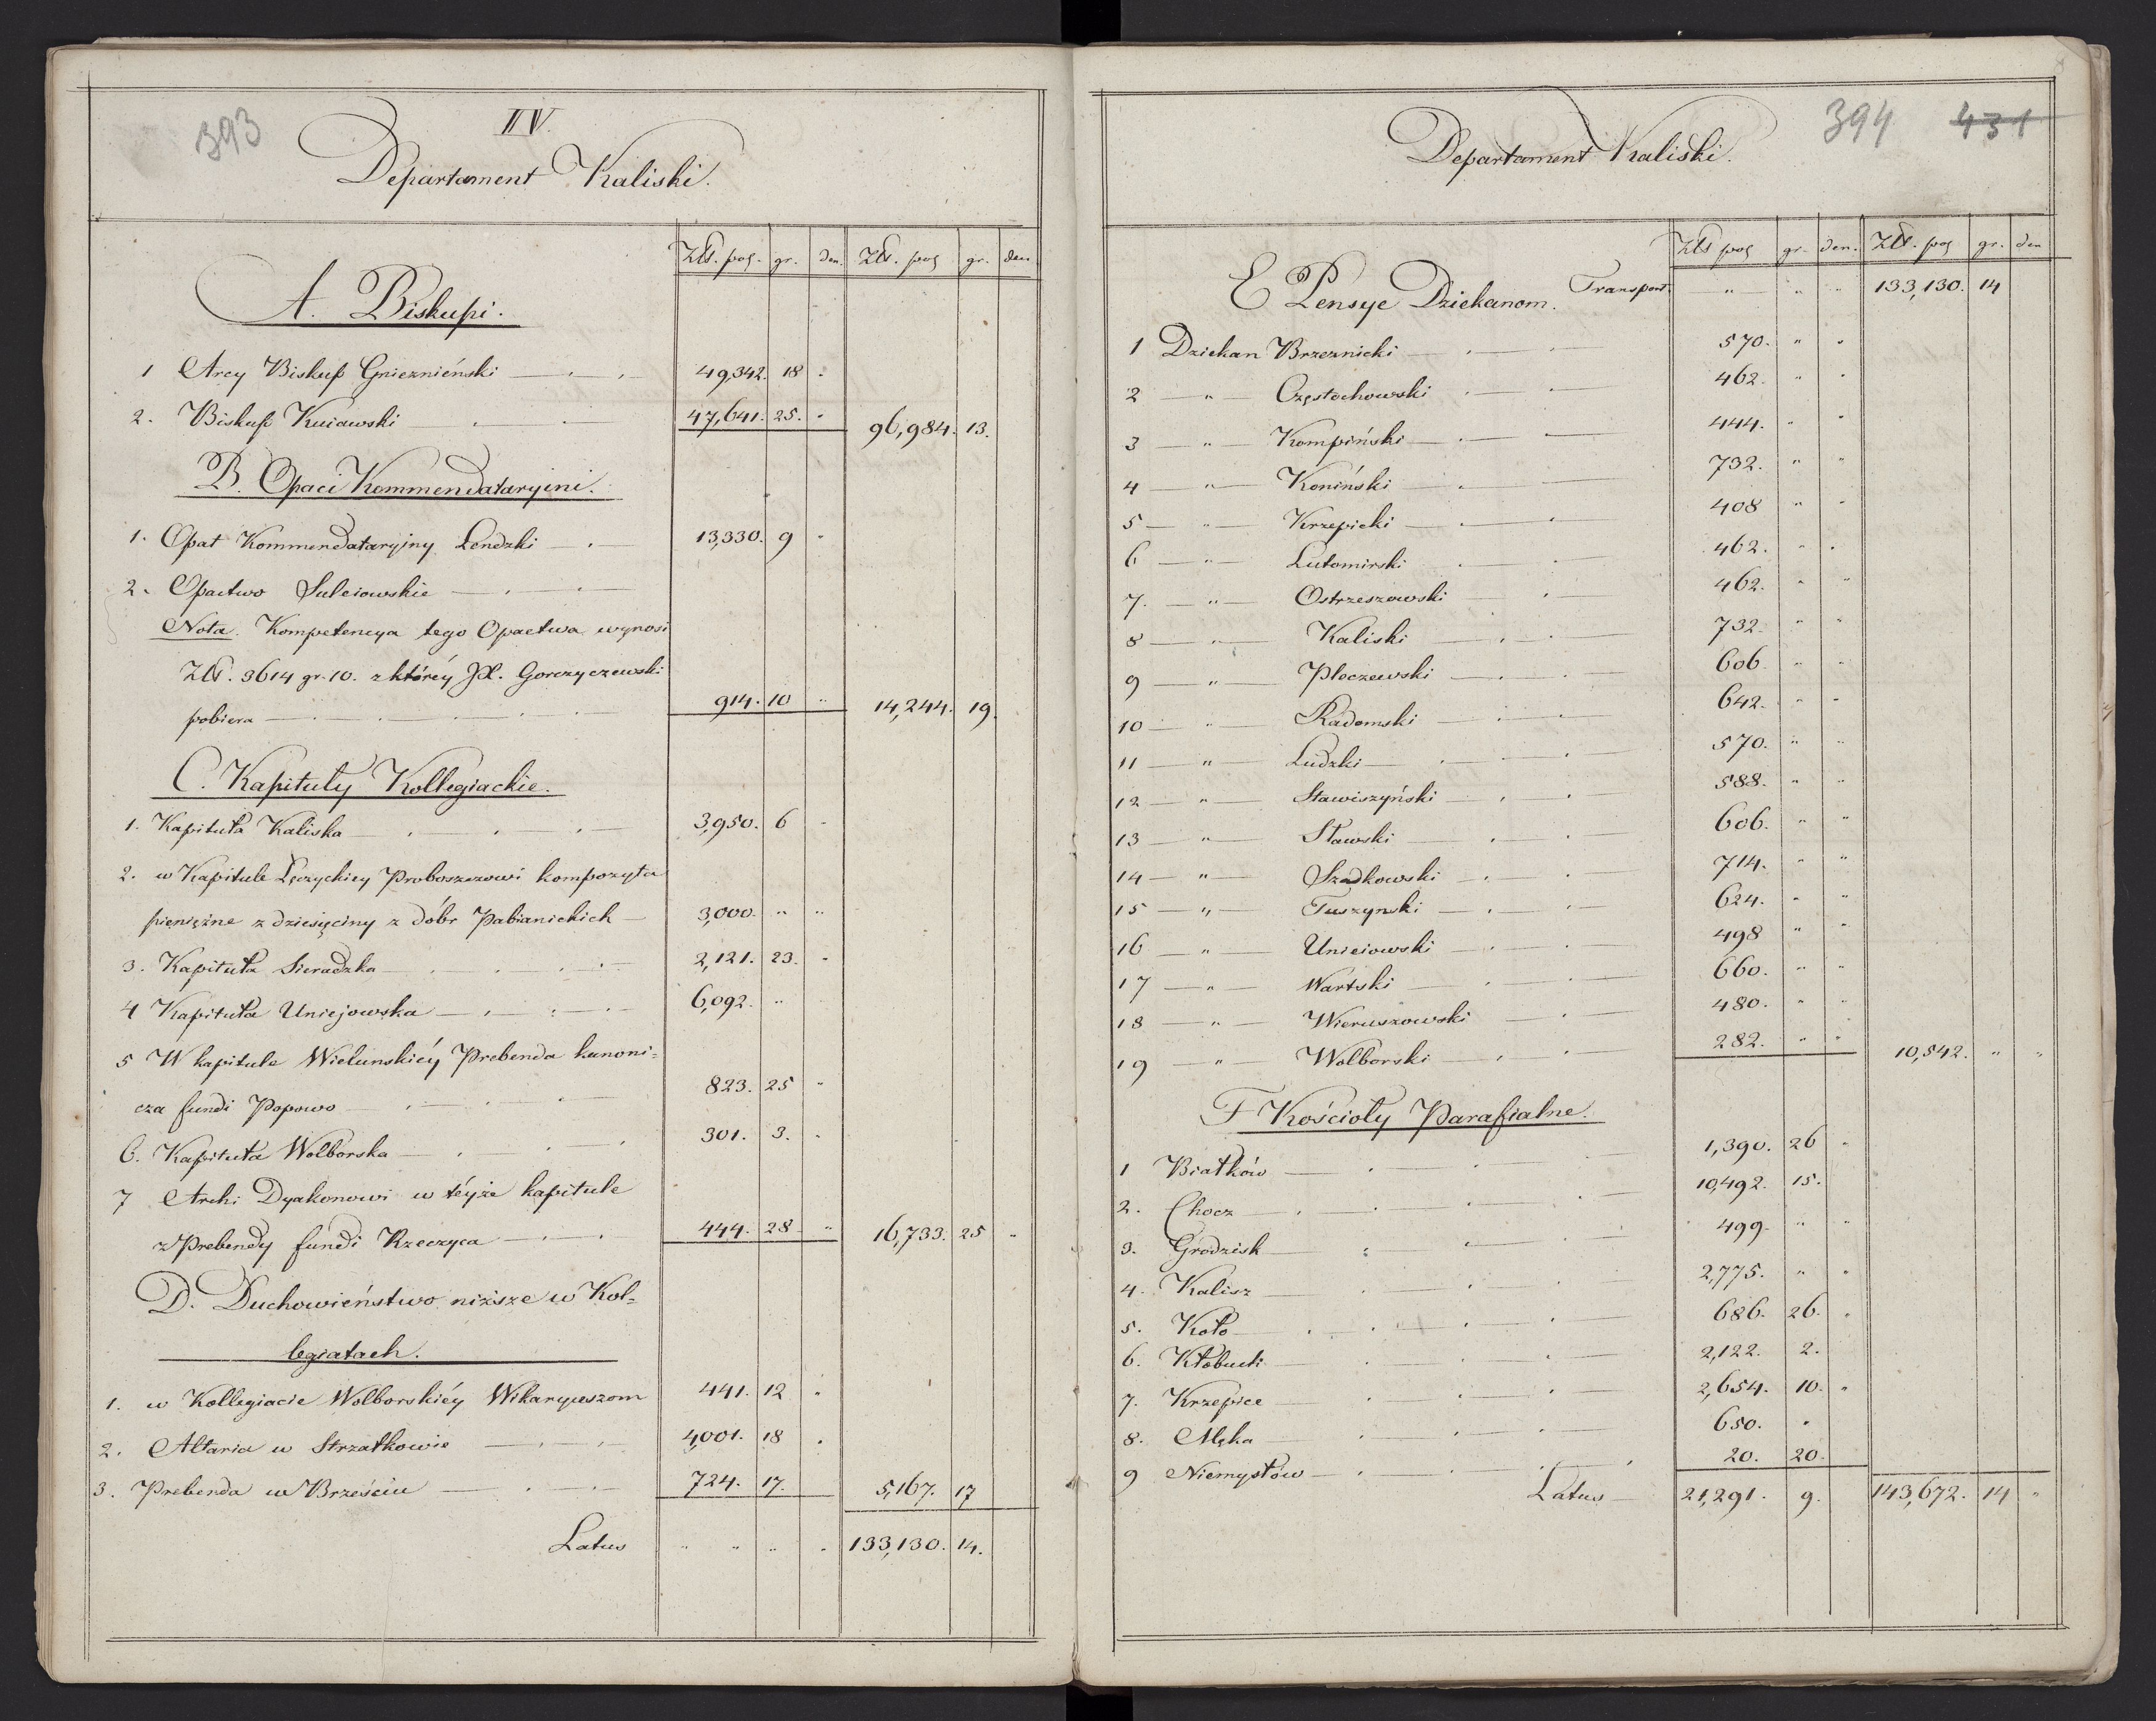 393
IV.
Departament Kaliski.
Złt. pol. gr. den. Złt. pol gr. den.
A. Biskupi.
1 Arcy Biskup Gnieznieński 49,342. 18 "
2. Biskup Kuiawski 47,641. 25. " 96,984. 13.
B. Opaci Kommendataryini.
1. Opat Kommendataryiny Lendzki 13,330. 9 "
2. Opactwo Suleiowskie
Nota. Kompetencya tego Opactwa wynosi
Złt. 3614 gr. 10. z któréy JX. Gorczyczewski
pobiera 914. 10 " 14,244. 19.
C. Kapituły Kollegiackie.
1. Kapituła Kaliska 3,950. 6 "
2. w Kapitule Łęczyckiey Proboszczowi kompozyta
pieniężne z dziesięciny z dóbr Pabianickich 3,000. " "
3. Kapituła Sieradzka 2,121. 23. "
4 Kapituła Uniejowska 6,092. "
5 W kapitule Wielunskiéy Prebenda kanoni=
cza fundi Popowo 823. 25 "
6. Kapituła Wolborska 301. 3. "
7 Archi Dyakonowi w téyże kapitule
z Prebendy fundi Rzeczyca 444. 28 " 16,733. 25 "
D. Duchowieństwo niższe w Kol=
legiatach.
1. w Kollegiacie Wolborskiéy Wikaryuszom 441. 12 "
2. Altaria w Strzałkowie 4,001. 18 "
3. Prebenda w Brześciu 724. 17. 5,167. 17
Latus " " " " 133,130. 14.
394 431
Departament Kaliski.
Złt pol gr. den. Złt. pol gr. den
E Pensye Dziekanom. Transport. " " " 133,130. 14
1 Dziekan Brzeznicki 570. " "
2 " Częstochowski 462. " "
3 " Kompiński 444. " "
4 " Koniński 732. " "
5 " Krzepicki 408 " "
6 " Lutomirski 462. " "
7. " Ostrzeszowski 462. " "
8 " Kaliski 732. " "
9 " Pleczewski 606. " "
10 " Radomski 642. " "
11 " Ludzki 570. " "
12 " Stawiszyński 588. " "
13 " Stawski 606. " "
14 " Szadkowski 714. " "
15 " Tuszynski 624. " "
16 " Unieiowski 498 " "
17 " Wartski 660. " "
18 " Wieruszowski 480. " "
19 " Wolborski 282. " " 10,542. " "
F Kościoły Parafialne.
1 Białków 1,390. 26 "
2. Chocz 10,492. 15.
3. Grodzisk 499. " "
4. Kalisz 2,775. " "
5. Koło 686. 26. "
6. Kłobuck 2,122. 2.
7. Krzepice 2,654. 10. "
8. Męka 650. "
9 Niemysłów 20. 20.
Latus 21,291. 9. 143,672. 14 "